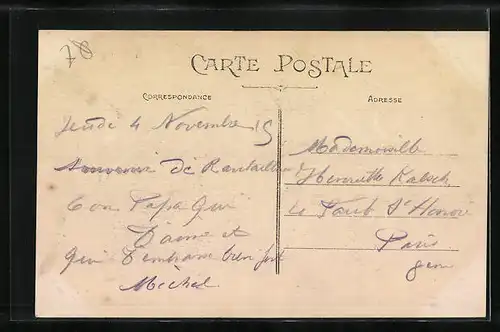 78
CARTE POSTALE
CORRESPONDANCE
ADRESSE
Jeudi 4 Novembre 15
Souvenir de
Ton Papa qui
t'aime et
qui t'embrasse bien fort
Michel
Mademoiselle
Henriette
Faub St Honoré
Paris